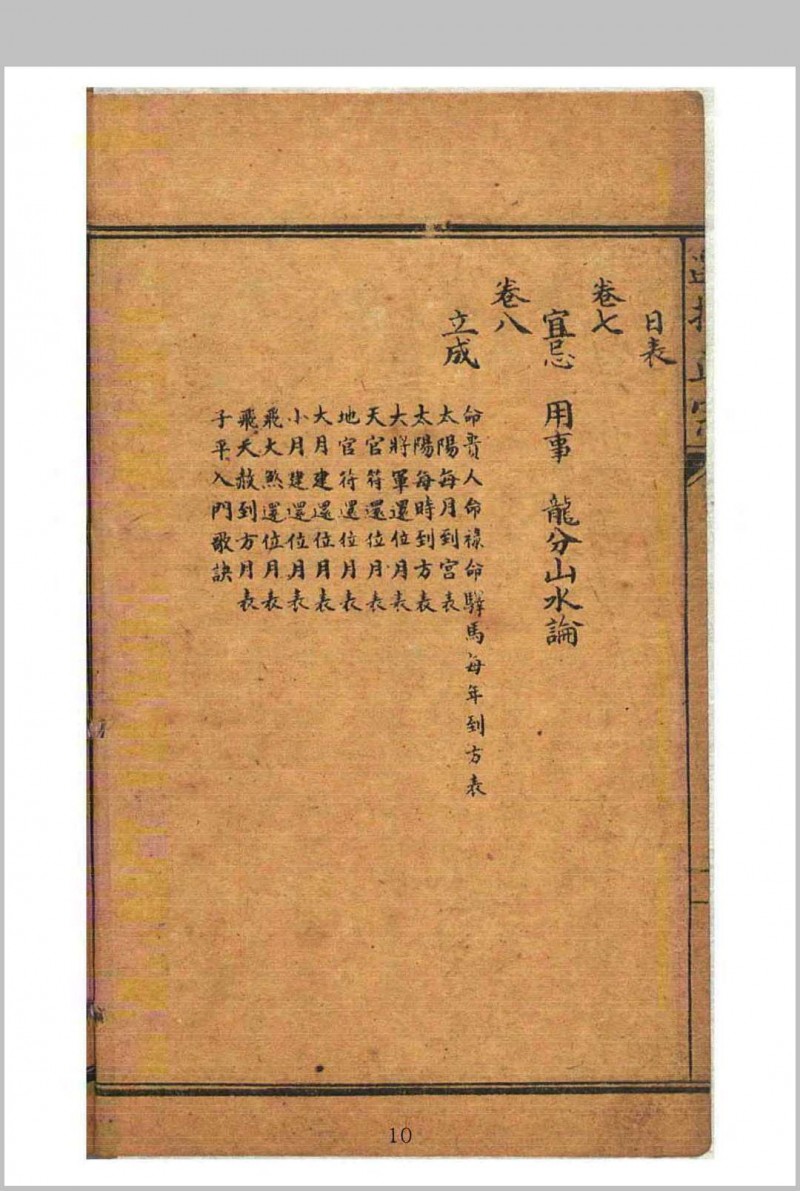 日表
卷七
宜忌　用事　龍分山水論
卷八
立成
命貴人命祿命驛馬每年到方表
太陽每月到宮表
太陽每時到方表
大將軍還位月表
天官符還位月表
地官符還位月表
大月建還位月表
小月建還位月表
飛大煞還位月表
飛天赦到方月表
子平入門歌訣
10